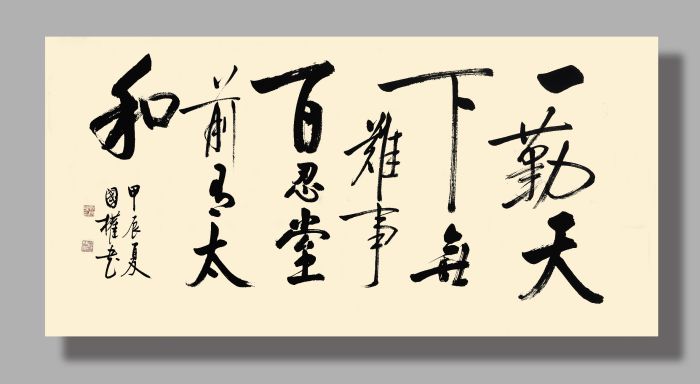 一勤天
下無
難事
百忍堂
前有太
和
甲辰夏
國權書